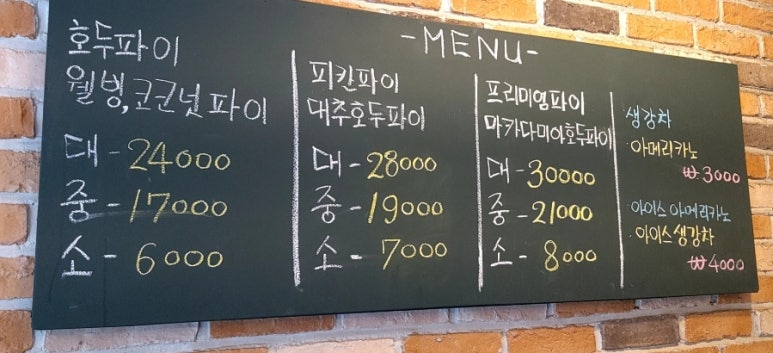 -MENU-
호두파이
웰빙,코코넛파이
대-24000
중-17000
소-6000
피칸파이
대추호두파이
대-28000
중-19000
소-7000
프리미엄파이
마카다미아호두파이
대-30000
중-21000
소-8000
생강차
·아메리카노
₩3000
·아이스아메리카노
·아이스생강차
₩4000